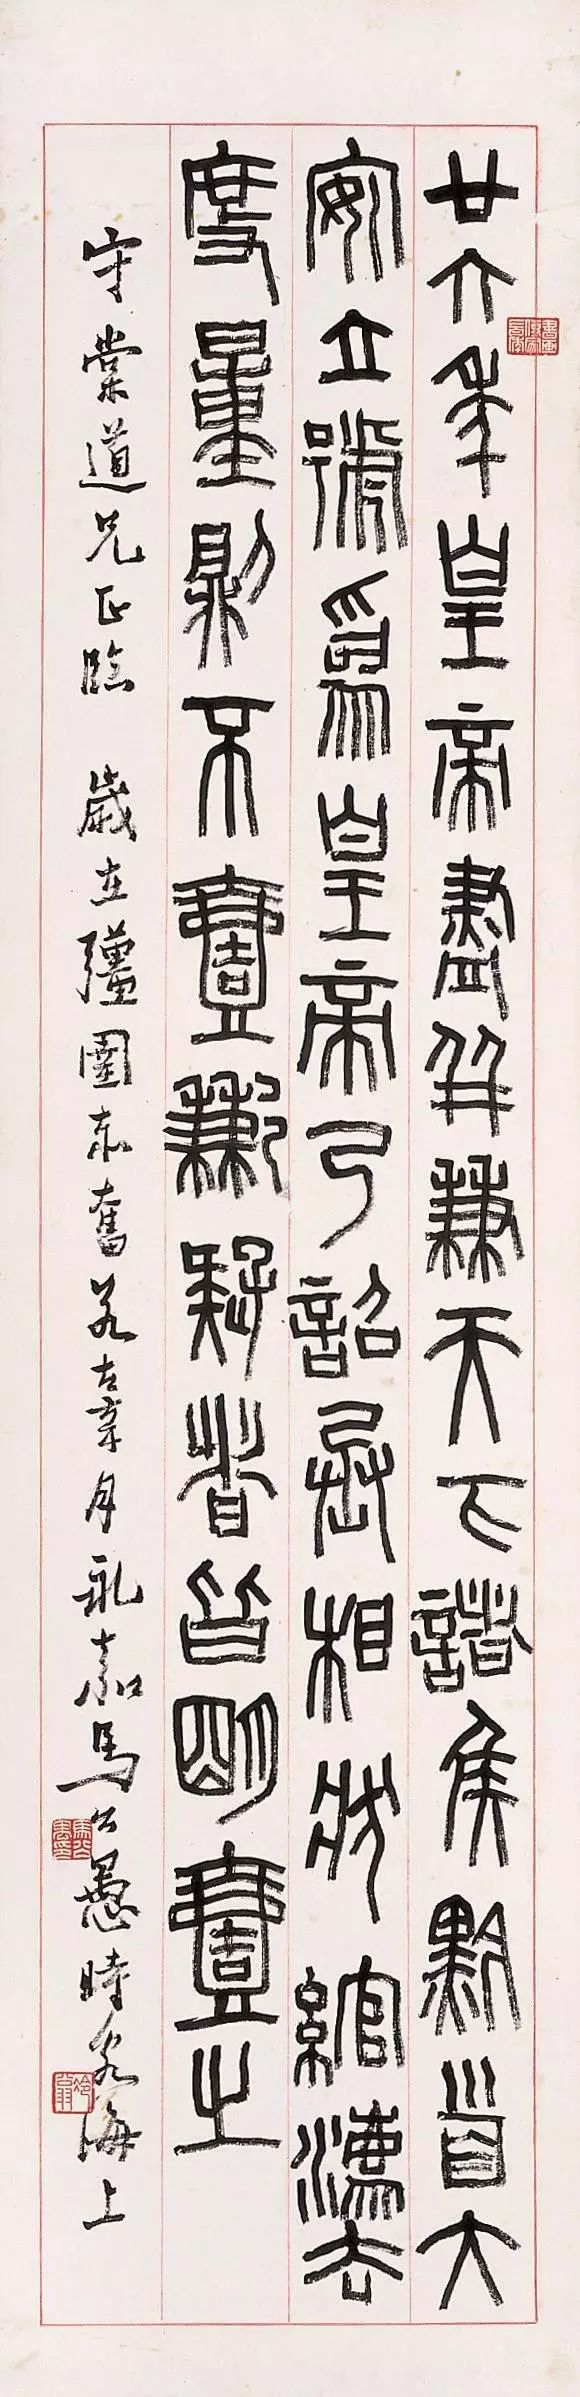 廿六年皇帝盡并兼天下諸侯黔首大
安立號為皇帝乃詔丞相狀綰灋
度量則不壹歉疑者皆明壹之
守棠道兄正臨 歲在彊圉赤奮若辜月永嘉馬公愚時客海上